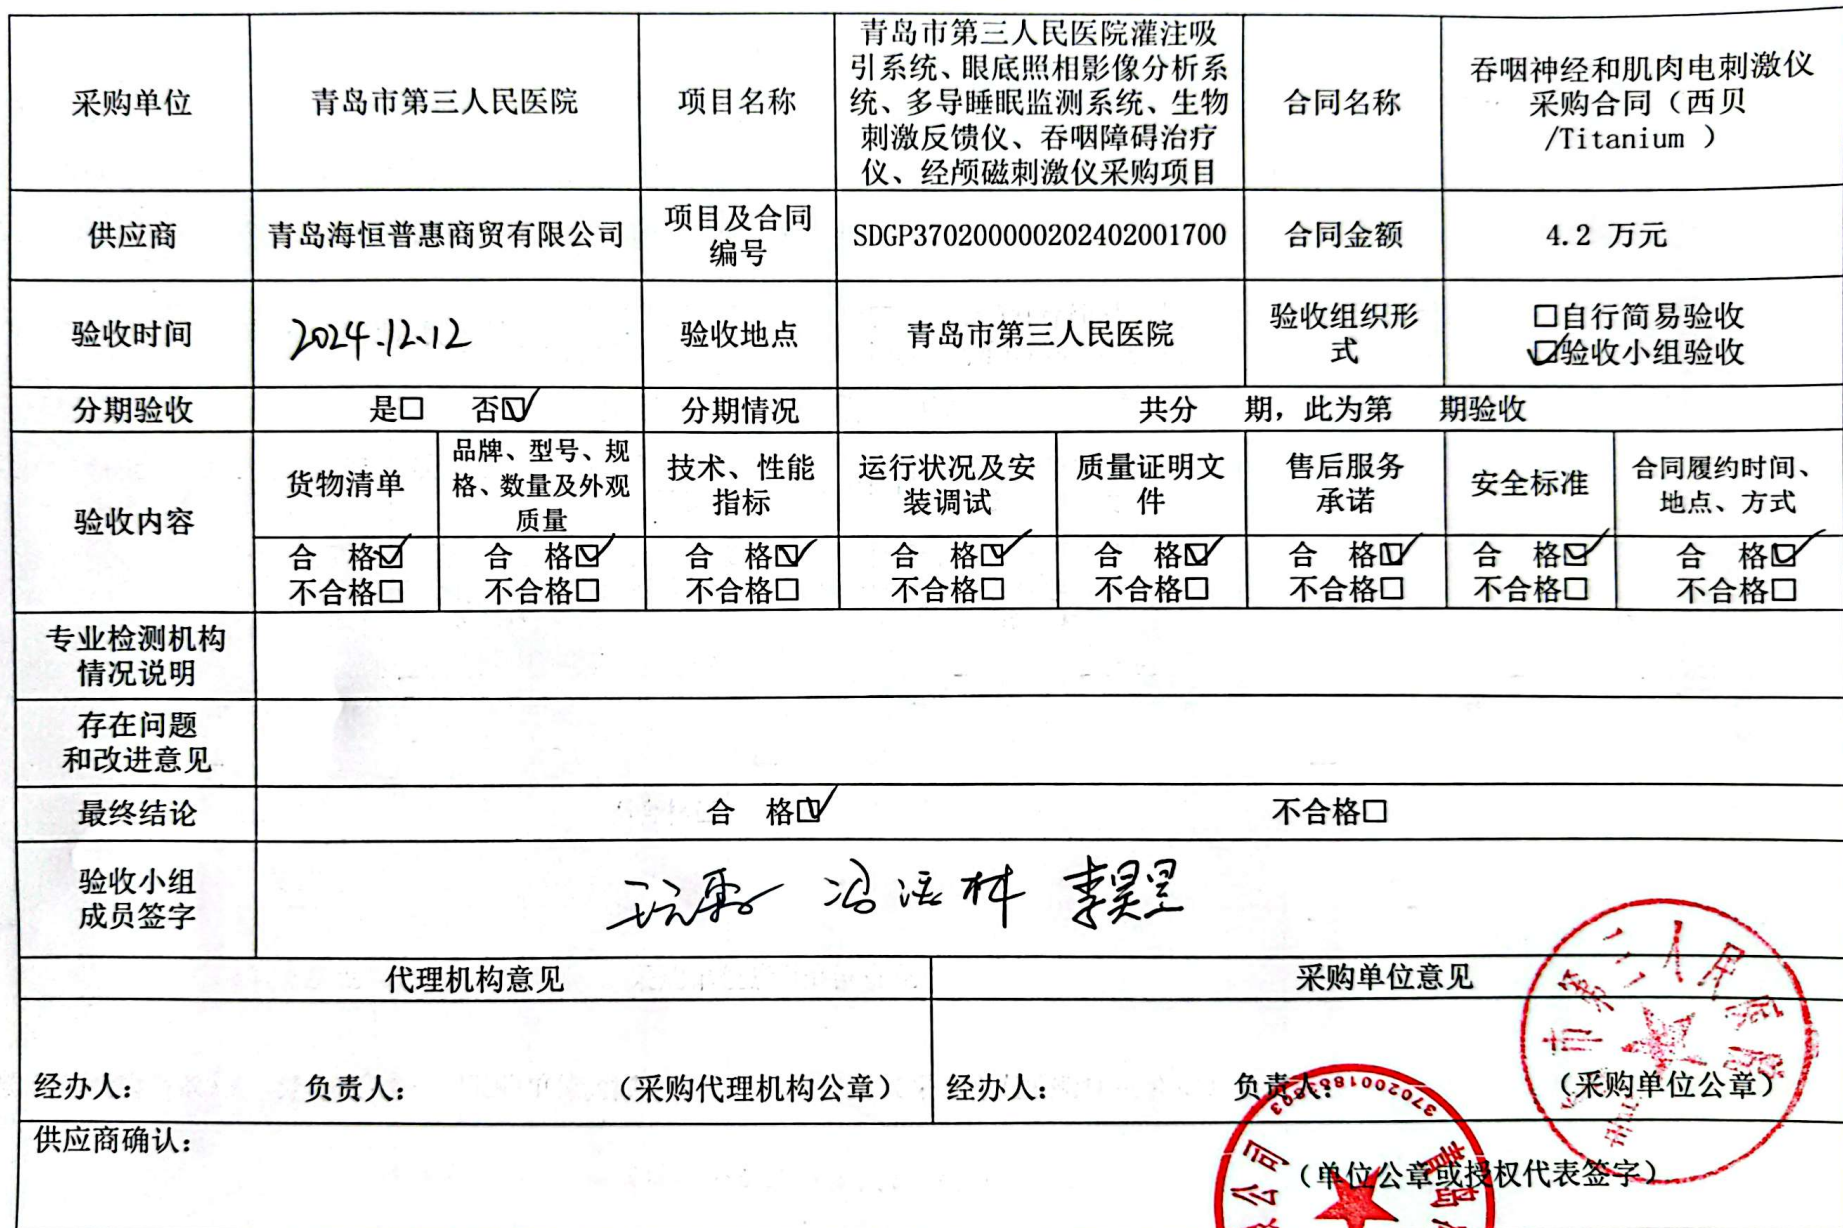 采购单位
青岛市第三人民医院
项目名称
青岛市第三人民医院灌注吸
引系统、眼底照相影像分析系
统、多导睡眠监测系统、生物
刺激反馈仪、吞咽障碍治疗
仪、经颅磁刺激仪采购项目
合同名称
吞咽神经和肌肉电刺激仪
采购合同（西贝
/Titanium ）
供应商
青岛海恒普惠商贸有限公司
项目及合同
编号
SDGP370200000202402001700
合同金额
4.2 万元
验收时间
2024.12.12
验收地点
青岛市第三人民医院
验收组织形
式
□自行简易验收
☑验收小组验收
分期验收
是□ 否☑
分期情况
共分 期，此为第 期验收
验收内容
货物清单
品牌、型号、规
格、数量及外观
质量
技术、性能
指标
运行状况及安
装调试
质量证明文
件
售后服务
承诺
安全标准
合同履约时间、
地点、方式
合 格☑
不合格□
合 格☑
不合格□
合 格☑
不合格□
合 格☑
不合格□
合 格☑
不合格□
合 格☑
不合格□
合 格☑
不合格□
合 格☑
不合格□
专业检测机构
情况说明
存在问题
和改进意见
最终结论
合 格☑ 不合格□
验收小组
成员签字
李昊昱
代理机构意见
采购单位意见
经办人： 负责人： （采购代理机构公章）
经办人： 负责人： （采购单位公章）
市第三人民医院
供应商确认：
（单位公章或授权代表签字）
青岛
公司